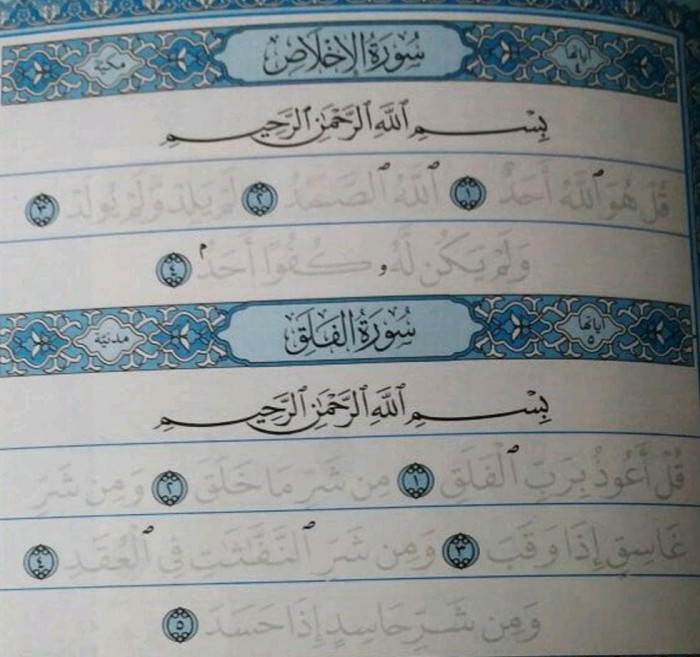 آياتها ٤ سُورَةُ الإِخْلَاصِ مكية
بِسْمِ ٱللَّهِ ٱلرَّحْمَٰنِ ٱلرَّحِيمِ
قُلْ هُوَ ٱللَّهُ أَحَدٌ ١ ٱللَّهُ ٱلصَّمَدُ ٢ لَمْ يَلِدْ وَلَمْ يُولَدْ ٣
وَلَمْ يَكُن لَّهُۥ كُفُوًا أَحَدٌۢ ٤
آياتها ٥ سُورَةُ الفَلَقِ مدنيّة
بِسْمِ ٱللَّهِ ٱلرَّحْمَٰنِ ٱلرَّحِيمِ
قُلْ أَعُوذُ بِرَبِّ ٱلْفَلَقِ ١ مِن شَرِّ مَا خَلَقَ ٢ وَمِن شَرِّ
غَاسِقٍ إِذَا وَقَبَ ٣ وَمِن شَرِّ ٱلنَّفَّٰثَٰتِ فِى ٱلْعُقَدِ ٤
وَمِن شَرِّ حَاسِدٍ إِذَا حَسَدَ ٥